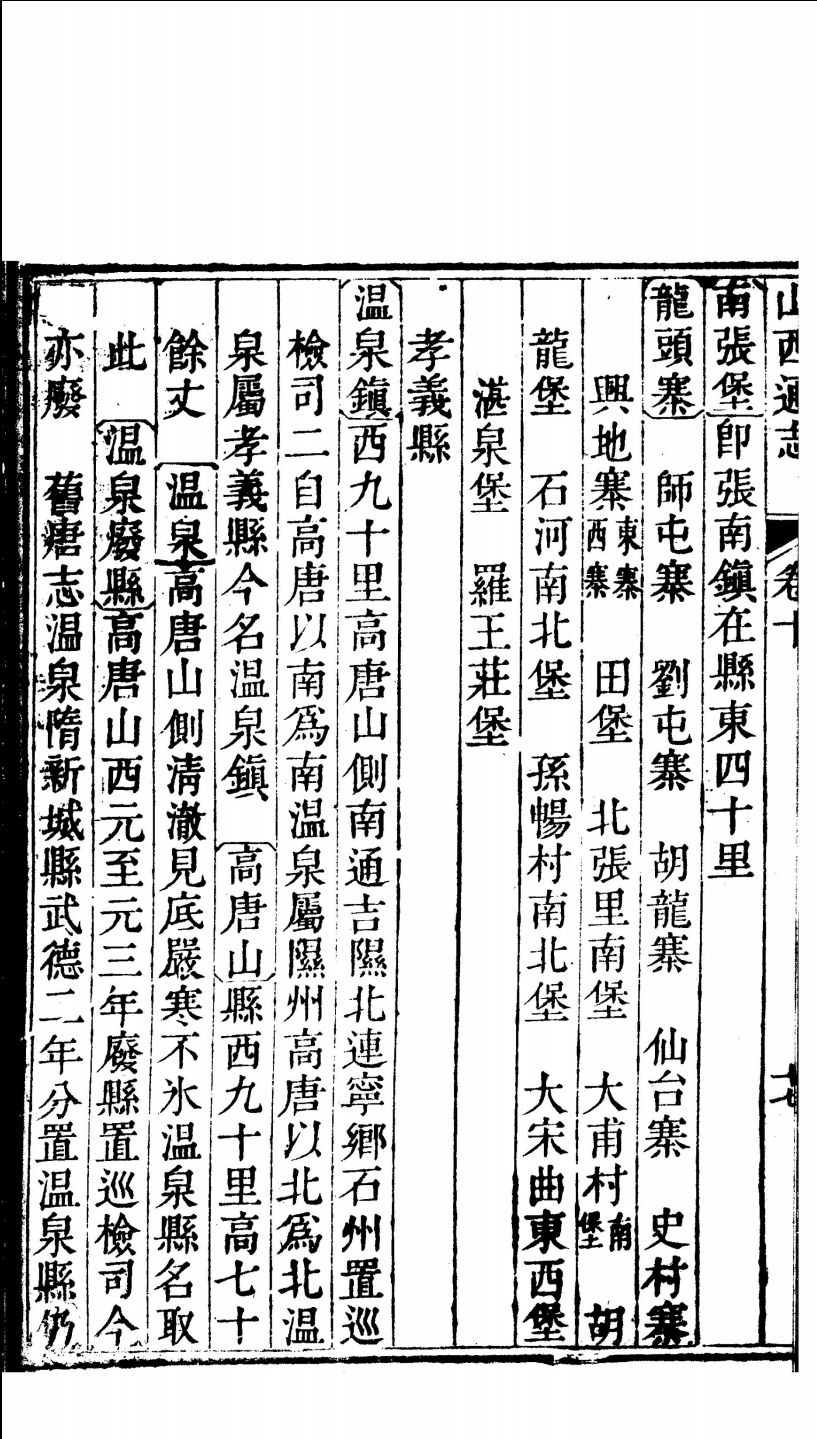 山西通志 卷十 十七
南張堡卽張南鎮在縣東四十里
龍頭寨 師屯寨 劉屯寨 胡龍寨 仙台寨 史村寨
興地寨東寨西寨 田堡 北張里南堡 大甫村南堡 胡
龍堡 石河南北堡 孫暢村南北堡 大宋曲東西堡
湛泉堡 羅王莊堡
孝義縣
温泉鎮西九十里高唐山側南通吉隰北連寧鄉石州置巡
檢司二自高唐以南爲南温泉屬隰州高唐以北爲北温
泉屬孝義縣今名温泉鎮 高唐山縣西九十里高七十
餘丈 温泉高唐山側清澈見底嚴寒不氷温泉縣名取
此 温泉廢縣高唐山西元至元三年廢縣置巡檢司今
亦廢 舊唐志温泉隋新城縣武德二年分置温泉縣仍